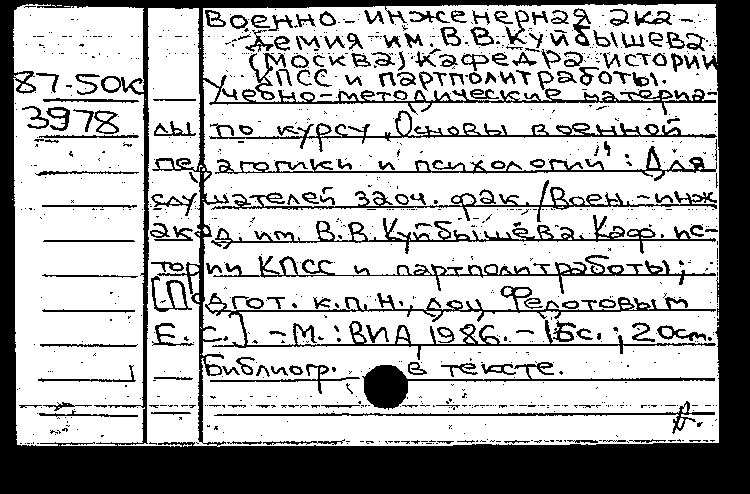 Военно-инженерная ака-
демия им. В.В. Куйбышева
(Москва) Кафедра истории
87-50К КПСС и партполитработы.
Учебно-методические материа-
3978 лы по курсу „Основы военной
педагогики и психологии“: Для
слушателей заоч. фак. / Воен.-инж
акад. им. В.В. Куйбышева. Каф. ис-
тории КПСС и партполитработы;
[Подгот. к.п.н., доц. Федотовым
Е. С.]. - М.: ВИА, 1986. - 16с.; 20см.
Библиогр. в тексте.